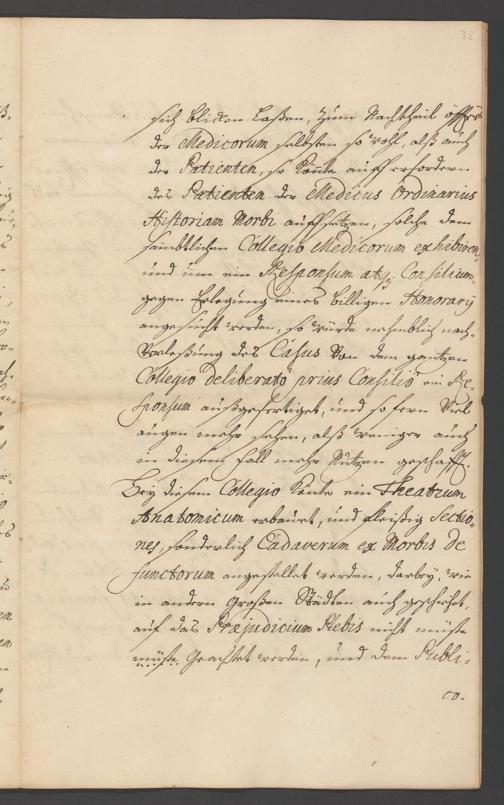 32
sich blicken laßen, zum Nachtheil öffters
der Medicorum selbsten so wohl, alß auch
der Patienten, so könte auff erfordern
des Patienten der Medicus Ordinarius
Historiam Morbi auffsetzen, solche dem
sämbtlichen Collegio Medicorum exhibiren,
und um ein Responsum atq. Consilium
gegen Erlegung eines billigen Honorarij
angesucht werden, so würde nehmblich nach
Verleßung des Casus von dem gantzen
Collegio deliberato prius Consilio ein Re-
sponsum außgefertiget, und so fern viel
augen mehr sehen, alß weniger auch
in diesem fall mehr Nutzen geschafft.
Bey diesem Collegio könte ein Theatrum
Anatomicum erbauet, und fleißig Sectio-
nes, sonderlich Cadaverum ex Morbis de
functorum angestellet werden, darbey, wie
in andern Großen Städten auch geschiehet,
auf das Præjudicium Plebis nicht müste
müste Geachtet werden, und dem Publi-
co.